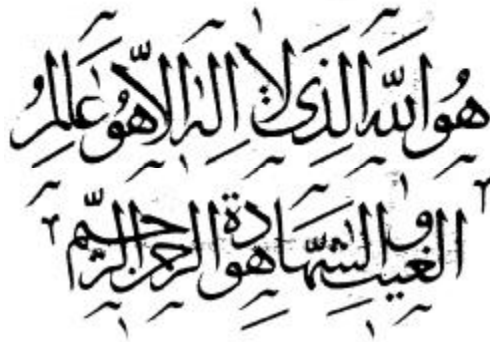 هُوَ اللّٰهُ الَّذِی لَا إِلٰهَ إِلَّا هُوَ عَالِمُ
الْغَیْبِ وَالشَّهَادَةِ هُوَ الرَّحْمٰنُ الرَّحِیمُ